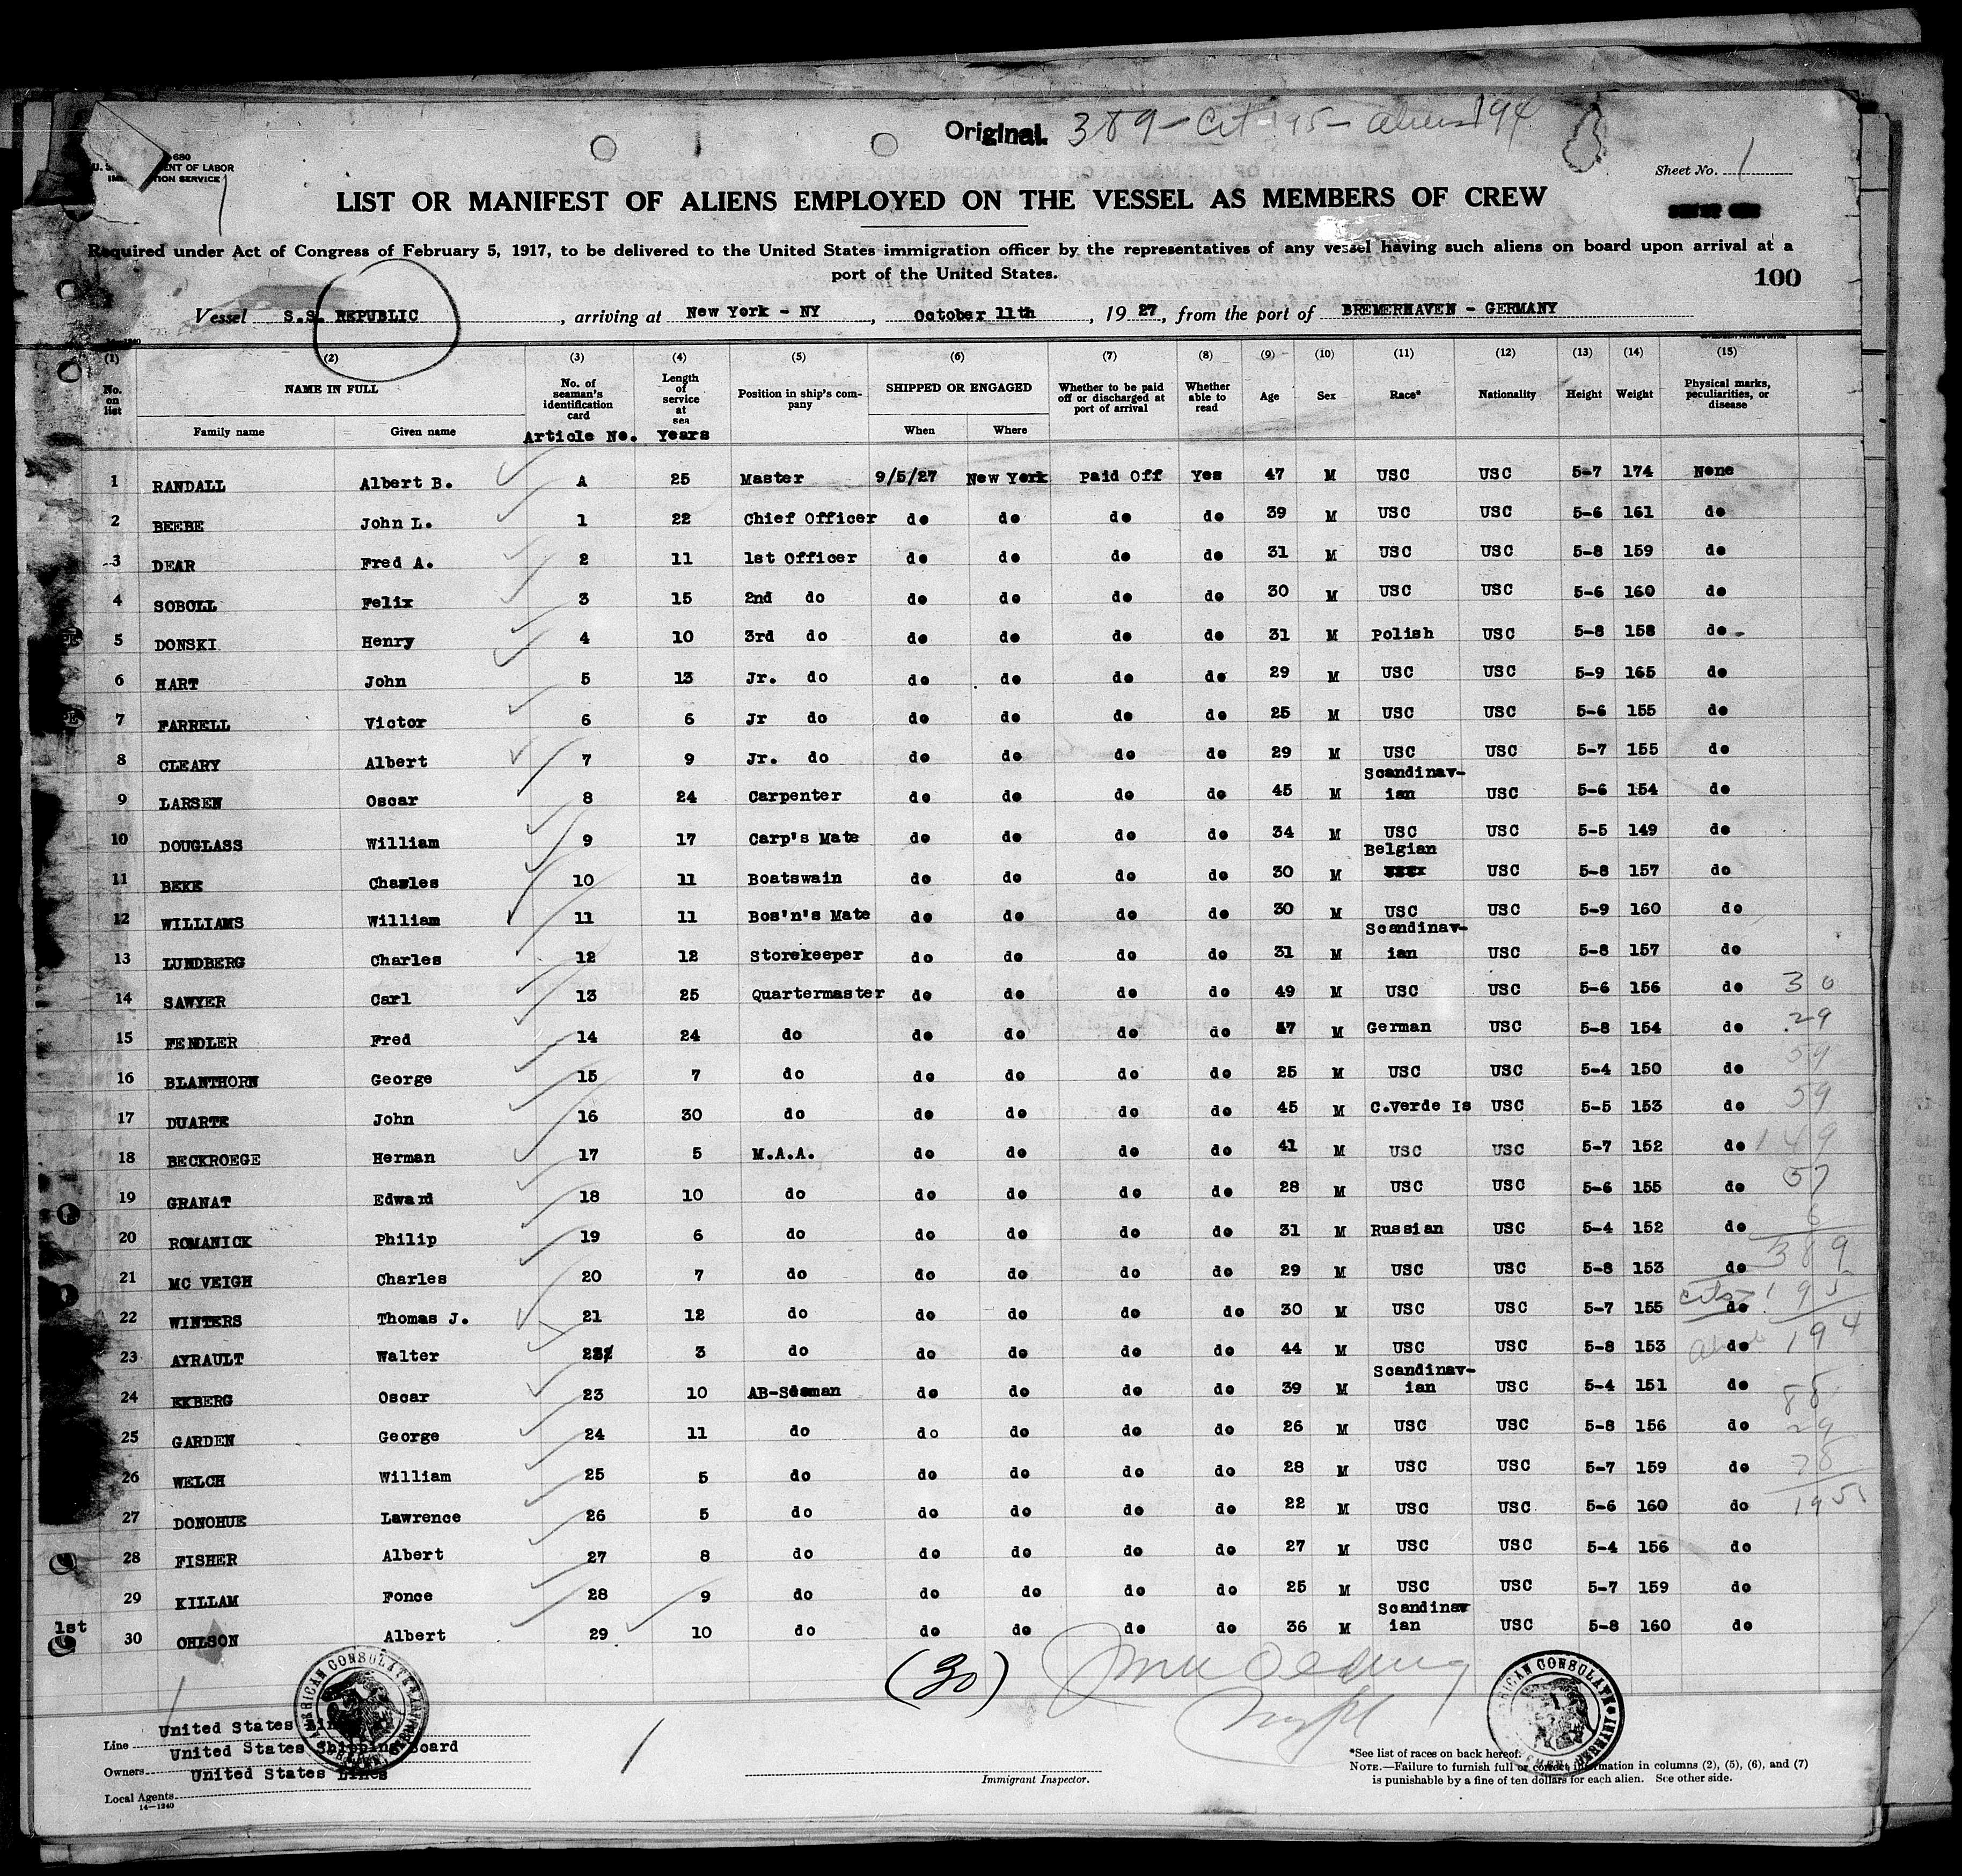 Original. 389 - Cit 195 - Aliens 194
680
U. S. DEPARTMENT OF LABOR
IMMIGRATION SERVICE
Sheet No. 1
LIST OR MANIFEST OF ALIENS EMPLOYED ON THE VESSEL AS MEMBERS OF CREW
Required under Act of Congress of February 5, 1917, to be delivered to the United States immigration officer by the representatives of any vessel having such aliens on board upon arrival at a
port of the United States.
100
Vessel S.S. REPUBLIC, arriving at New York - NY, October 11th, 1927, from the port of BREMERHAVEN - GERMANY
(1) (2) (3) (4) (5) (6) (7) (8) (9) (10) (11) (12) (13) (14) (15)
No. on list NAME IN FULL No. of seaman's identification card Length of service at sea Position in ship's company SHIPPED OR ENGAGED Whether to be paid off or discharged at port of arrival Whether able to read Age Sex Race* Nationality Height Weight Physical marks, peculiarities, or disease
Family name Given name Article No. Years When Where
1 RANDALL Albert B. A 25 Master 9/5/27 New York Paid Off Yes 47 M USC USC 5-7 174 None
2 BEEBE John L. 1 22 Chief Officer do do do do 39 M USC USC 5-6 161 do
3 DEAR Fred A. 2 11 1st Officer do do do do 31 M USC USC 5-8 159 do
4 SOBOLL Felix 3 15 2nd do do do do do 30 M USC USC 5-6 160 do
5 DONSKI Henry 4 10 3rd do do do do do 31 M Polish USC 5-8 158 do
6 HART John 5 13 Jr. do do do do do 29 M USC USC 5-9 165 do
7 FARRELL Victor 6 6 Jr do do do do do 25 M USC USC 5-6 155 do
8 CLEARY Albert 7 9 Jr. do do do do do 29 M USC USC 5-7 155 do
9 LARSEN Oscar 8 24 Carpenter do do do do 45 M Scandinav-ian USC 5-6 154 do
10 DOUGLASS William 9 17 Carp's Mate do do do do 34 M USC USC 5-5 149 do
11 BEKE Charles 10 11 Boatswain do do do do 30 M Belgian USC 5-8 157 do
12 WILLIAMS William 11 11 Bos'n's Mate do do do do 30 M USC USC 5-9 160 do
13 LUNDBERG Charles 12 12 Storekeeper do do do do 31 M Scandinav-ian USC 5-8 157 do
14 SAWYER Carl 13 25 Quartermaster do do do do 49 M USC USC 5-6 156 do 30
15 FENDLER Fred 14 24 do do do do do 47 M German USC 5-8 154 do 29
16 BLANTHORN George 15 7 do do do do do 25 M USC USC 5-4 150 do 59
17 DUARTE John 16 30 do do do do do 45 M C.Verde Is USC 5-5 153 do 59
18 BECKROEGE Herman 17 5 M.A.A. do do do do 41 M USC USC 5-7 152 do 149
19 GRANAT Edward 18 10 do do do do do 28 M USC USC 5-6 155 do 57
20 ROMANICK Philip 19 6 do do do do do 31 M Russian USC 5-4 152 do 6
21 MC VEIGH Charles 20 7 do do do do do 29 M USC USC 5-8 153 do 389
22 WINTERS Thomas J. 21 12 do do do do do 30 M USC USC 5-7 155 do cits 195
23 AYRAULT Walter 22 3 do do do do do 44 M USC USC 5-8 153 do 194
24 EKBERG Oscar 23 10 AB-Seaman do do do do 39 M Scandinav-ian USC 5-4 151 do 88
25 GARDEN George 24 11 do do do do do 26 M USC USC 5-8 156 do 29
26 WELCH William 25 5 do do do do do 28 M USC USC 5-7 159 do 78
27 DONOHUE Lawrence 26 5 do do do do do 22 M USC USC 5-6 160 do 195
28 FISHER Albert 27 8 do do do do do 27 M USC USC 5-4 156 do
29 KILLAM Fonce 28 9 do do do do do 25 M USC USC 5-7 159 do
1st
30 OHLSON Albert 29 10 do do do do do 36 M Scandinav ian USC 5-8 160 do
(30)
AMERICAN CONSULATE
AMERICAN CONSULATE
Line United States Lines
Owners United States Shipping Board
Local Agents United States Lines
14-1240
Immigrant Inspector.
*See list of races on back hereof.
NOTE.—Failure to furnish full or correct information in columns (2), (5), (6), and (7)
is punishable by a fine of ten dollars for each alien. See other side.